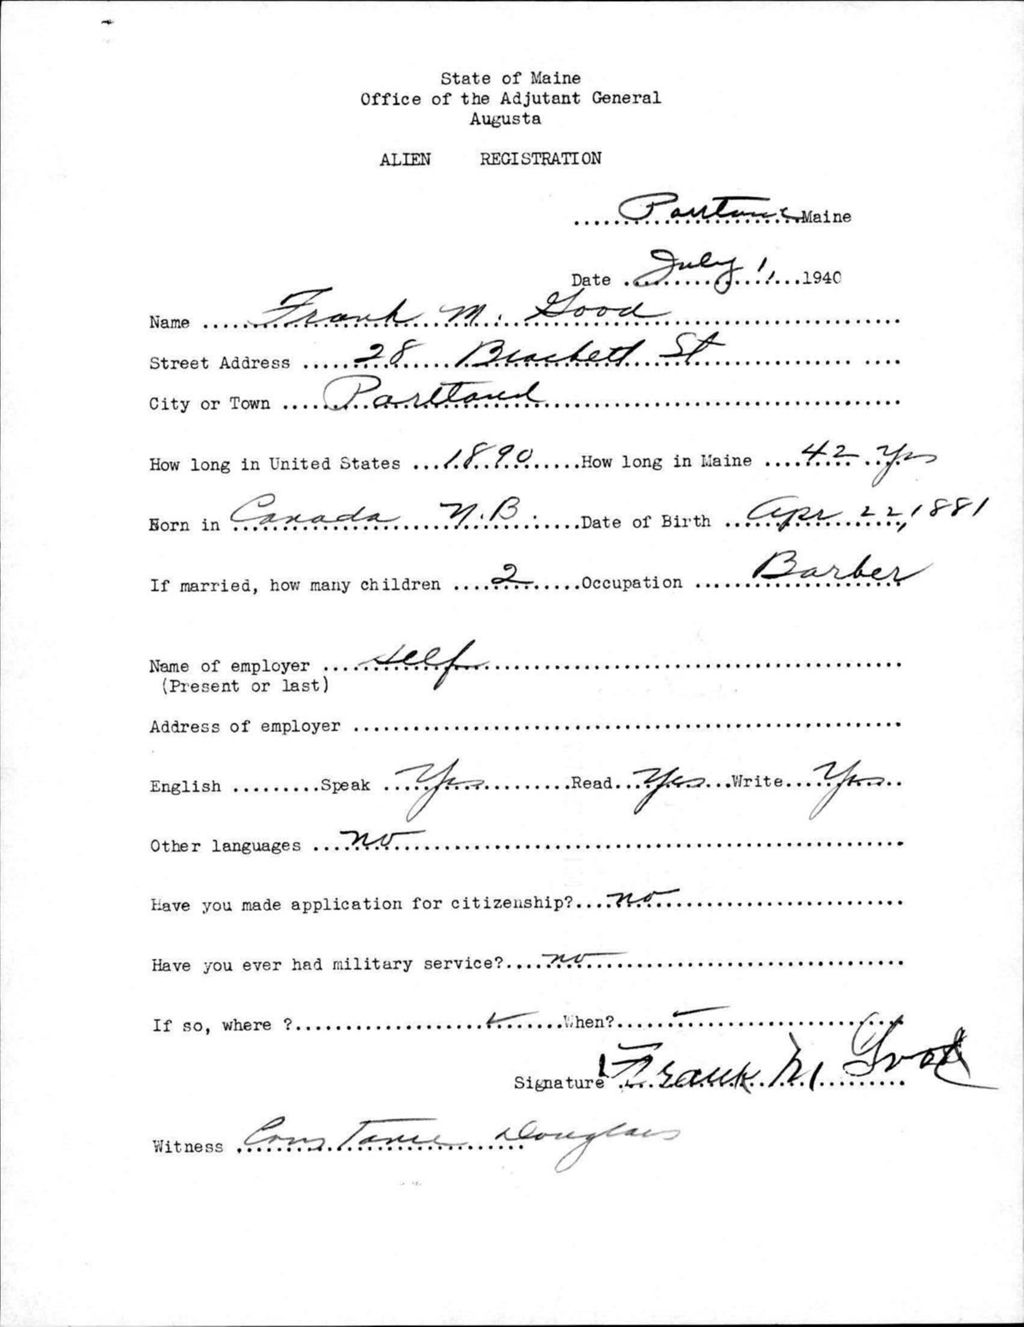 State of Maine
Office of the Adjutant General
Augusta
ALIEN REGISTRATION
.....Portland.....Maine
Date ...July 1,...1940
Name .....Frank M. Good.....
Street Address .....28 Brackett St.....
City or Town .....Portland.....
How long in United States ...1890.....How long in Maine ....42 Yrs
Born in Canada N.B......Date of Birth ..Apr 22, 1881
If married, how many children ....2.....Occupation ....Barber
Name of employer ....self.....
(Present or last)
Address of employer .....
English .........Speak ...Yes.........Read..Yes...Write...Yes...
Other languages ...no.....
Have you made application for citizenship?...no.....
Have you ever had military service?....no.....
If so, where ?.....When?.....
Signature Frank M Good
Witness Constance Douglass